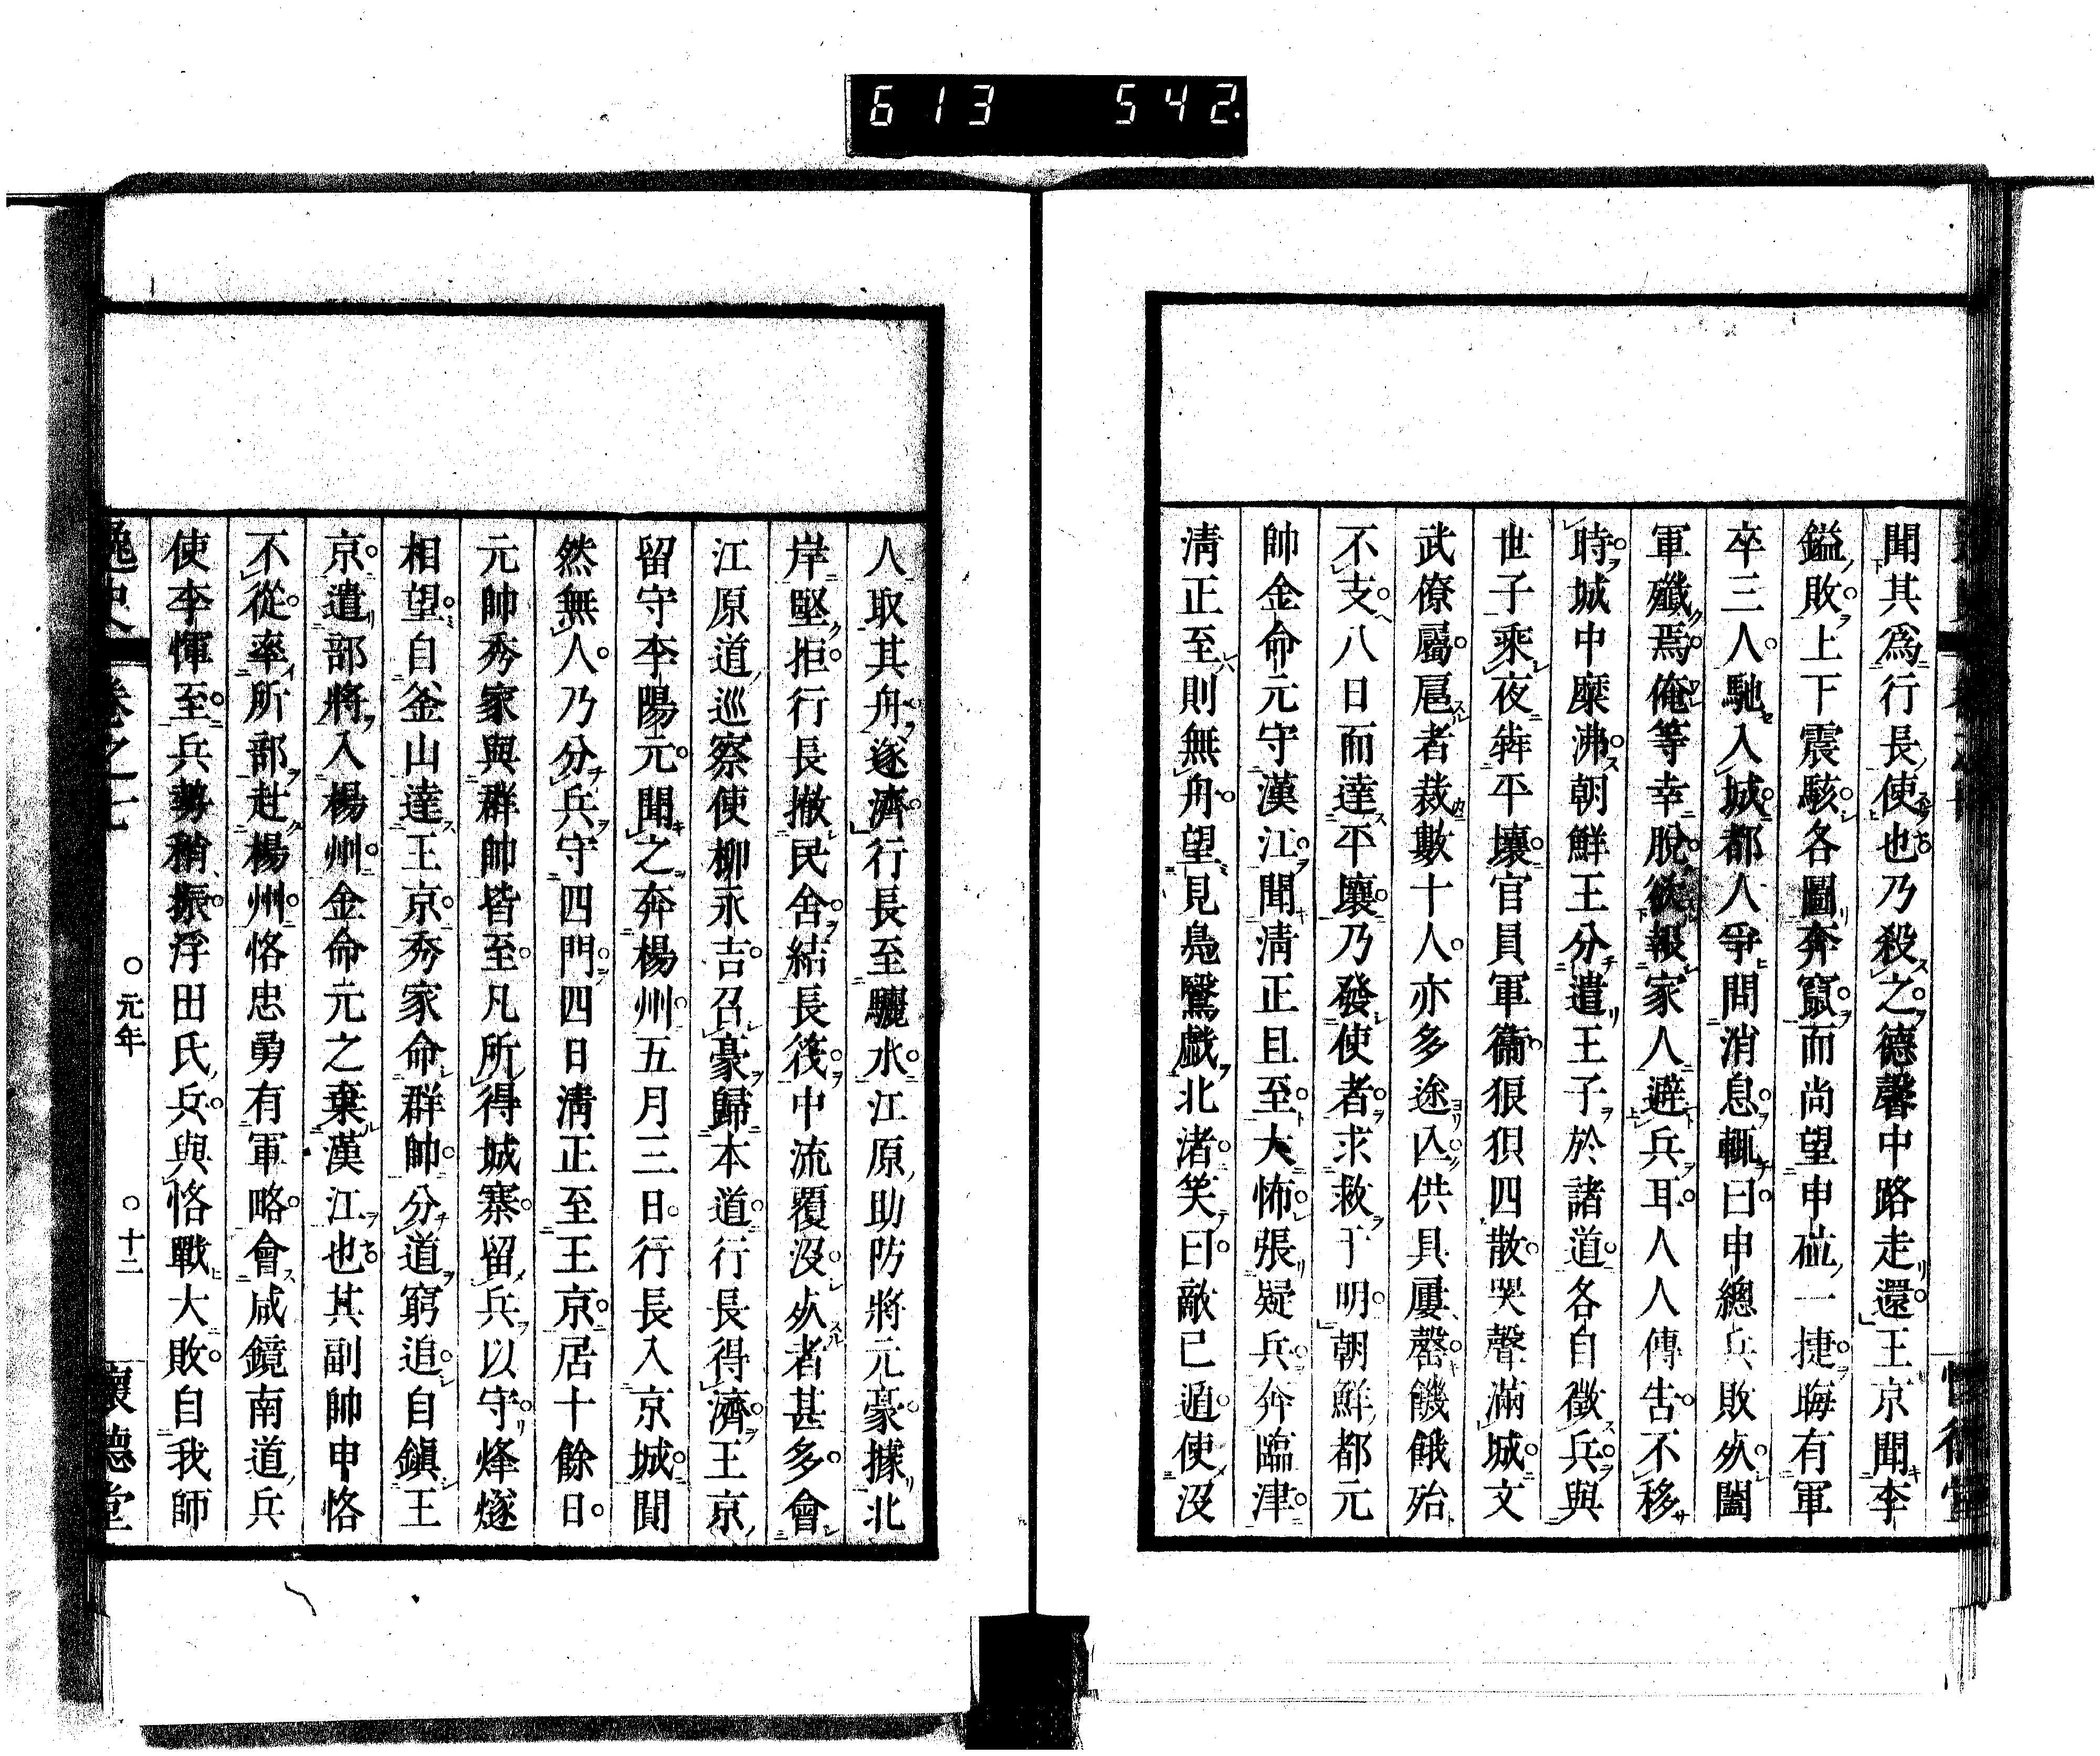 613 542.
聞其爲行長使也乃殺之德馨中路走還王京聞李
鎰敗上下震駭各圖奔竄而尚望申砬一捷晦有軍
卒三人馳入城都人爭問消息輒曰申總兵敗死闔
軍殲焉俺等幸脫欲報家人避兵耳人人傳告不移
時城中糜沸朝鮮王分遣王子於諸道各自徵兵與
世子乘夜犇平壤官員軍衞狼狽四散哭聲滿城文
武僚屬扈者裁數十人亦多途亾供具屢罄饑餓殆
不支八日而達平壤乃發使者求救于明朝鮮都元
帥金命元守漢江聞淸正且至大怖張疑兵奔臨津
淸正至則無舟望見鳧鷖戲北渚笑曰敵已遁使沒
人取其舟遂濟行長至驪水江原助防將元豪據北
岸堅拒行長撤民舍結長筏中流覆沒死者甚多會
江原道巡察使柳永吉召豪歸本道行長得濟王京
留守李陽元聞之奔楊州五月三日行長入京城闃
然無人乃分兵守四門四日淸正至王京居十餘日
元帥秀家與群帥皆至凡所得城寨留兵以守烽燧
相望自釜山達王京秀家命群帥分道窮追自鎭王
京遣部將入楊州金命元之棄漢江也其副帥申恪
不從率所部赴楊州恪忠勇有軍略會咸鏡南道兵
使李惲至兵勢稍振浮田氏兵與恪戰大敗自我師
逸史 卷之七 ○元年 ○十二 懷德堂